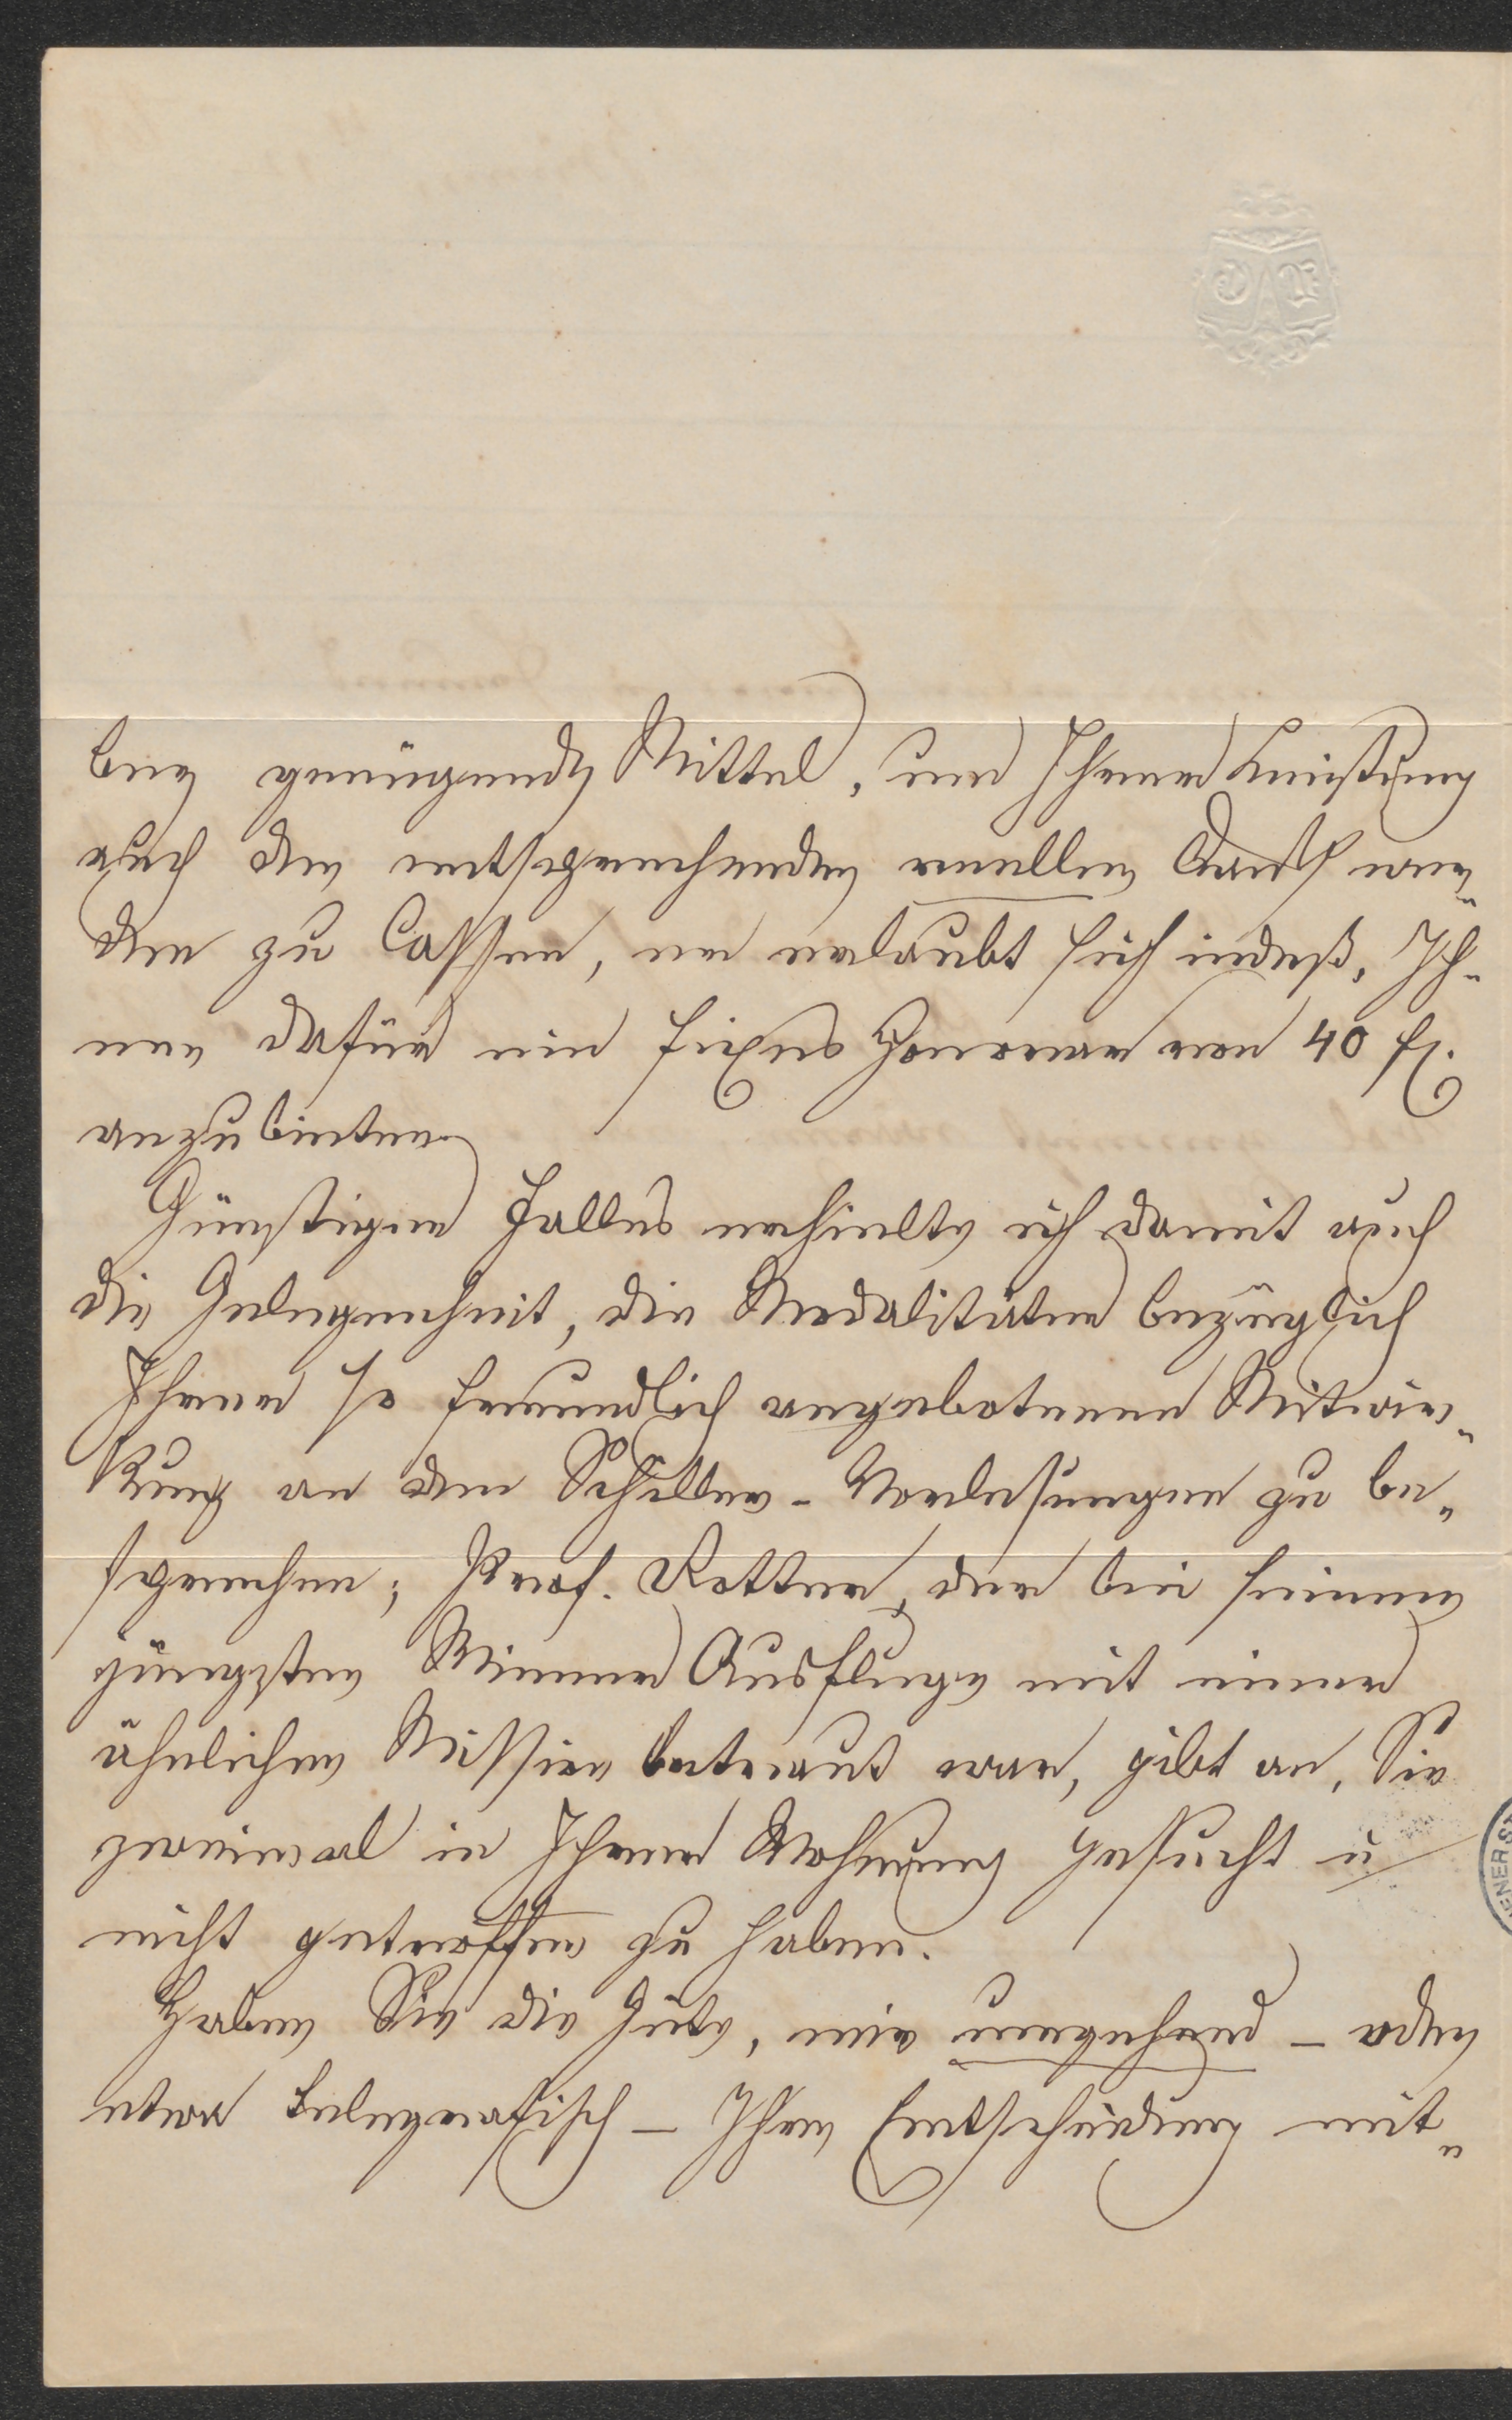 ben genügende Mittel, um Ihrer Leistung
auch den entsprechenden reellen Dank wer-
den zu lassen, er erlaubt sich indeß, Ih-
nen dafür ein fixes Honorar von 40 fl.
anzubieten.
Günstigen Falles erhielte ich damit auch
die Gelegenheit, die Modalitäten bezüglich
Ihrer so freundlich angebotenen Mitwir-
kung an den Schiller-Vorlesungen zu be-
sprechen; Prof. Rotter, der bei seinem
jüngsten Wiener Ausfluge mit einer
ähnlichen Mission betraut war, gibt an, Sie
zweimal in Ihrer Wohnung gesucht u
nicht getroffen zu haben.
Haben Sie die Güte, mir umgehend – oder
etwa telegrafisch – Ihre Entscheidung mit-